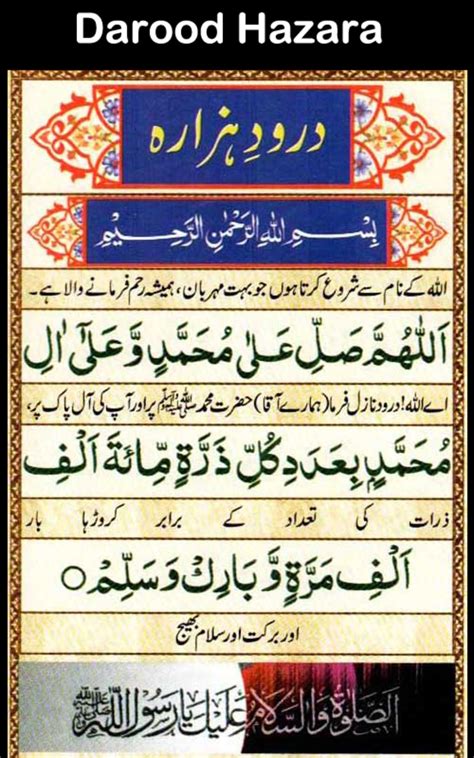 Darood Hazara
درودِ ہزارہ
بِسْمِ اللهِ الرَّحْمٰنِ الرَّحِيْمِ
اللہ کے نام سے شروع کرتا ہوں جو بہت مہربان، ہمیشہ رحم فرمانے والا ہے۔
اَللّٰهُمَّ صَلِّ عَلٰى مُحَمَّدٍ وَّعَلٰٓى اٰلِ
اے اللہ! درود نازل فرما (ہمارے آقا) حضرت محمد ﷺ پر اور آپ کی آل پاک پر،
مُحَمَّدٍ بِعَدَدِ كُلِّ ذَرَّةٍ مِّائَةَ اَلْفِ
ذرات کی تعداد کے برابر کروڑہا بار
اَلْفِ مَرَّةٍ وَّبَارِكْ وَسَلِّمْ ○
اور برکت اور سلام بھیج
الصلوة والسلام عليك يا رسول الله ﷺ